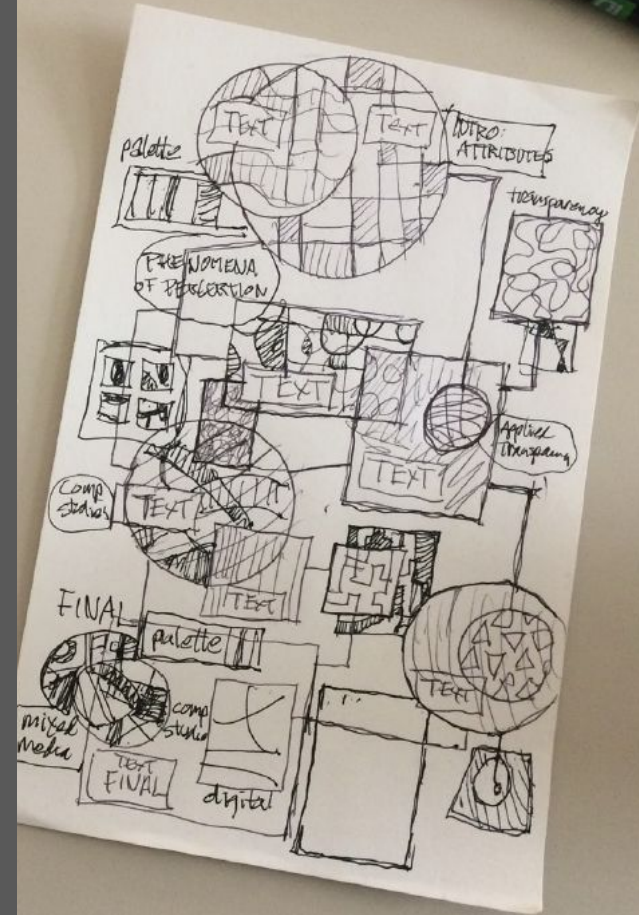 TEXT
TEXT
INTRO:
ATTRIBUTES
palette
transparency
PHENOMENA
OF PERCEPTION
TEXT
TEXT
Applied
Transparency
Comp
Studies
TEXT
TEXT
FINAL
palette
TEXT
mixed
Media
comp
studies
TEXT
FINAL
digital